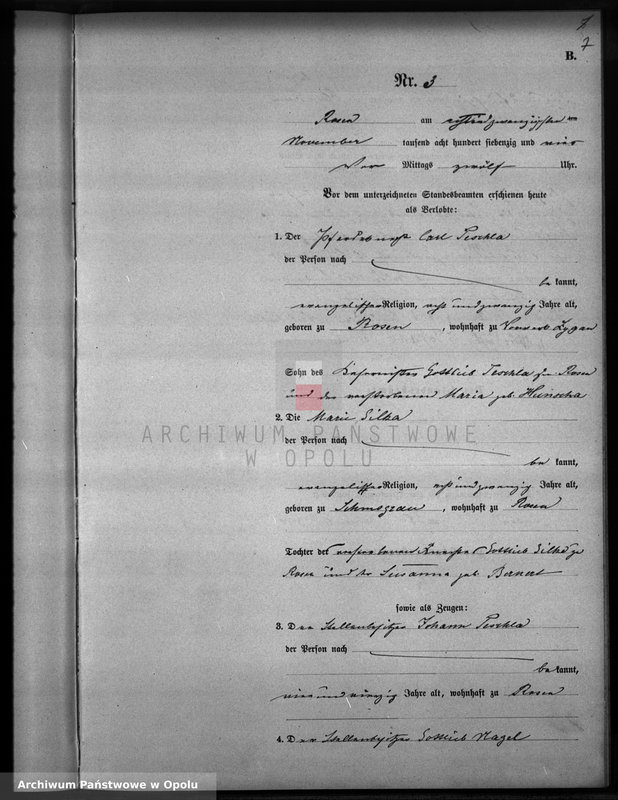 7
7
B.
Nr. 3
Rosen am achtundzwanzigsten
November tausend acht hundert siebenzig und vier
Vor Mittags zwölf Uhr.
Vor dem unterzeichneten Standesbeamten erschienen heute
als Verlobte:
1. Der Pferdeknecht Carl Peschla
der Person nach
be kannt,
evangelischer Religion, acht und zwanzig Jahre alt,
geboren zu Rosen, wohnhaft zu Vorwerk
Sohn des Gottlieb Peschla zu Rosen
und der verstorbenen Maria geb.
2. Die Marie Silka
der Person nach
be kannt,
evangelischer Religion, acht und zwanzig Jahre alt,
geboren zu Schmograu, wohnhaft zu Rosen
Tochter des verstorbenen Knechts Gottlieb Silka zu
Rosen und der Susanna geb. Bernert
sowie als Zeugen:
3. Der Stellenbesitzer Johann Peschla
der Person nach
be kannt,
vier und vierzig Jahre alt, wohnhaft zu Rosen
4. Der Stellenbesitzer Gottlieb Nagel
ARCHIWUM PAŃSTWOWE
W OPOLU
Archiwum Państwowe w Opolu